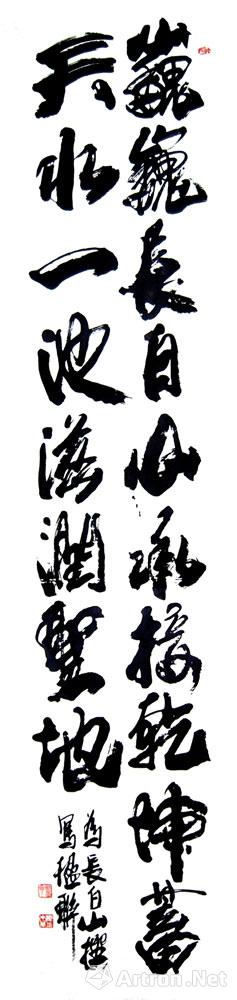 巍巍長白山承接乾坤蓄
天水一池滋潤聖地
為長白山撰
寫楹聯
Artron.Net